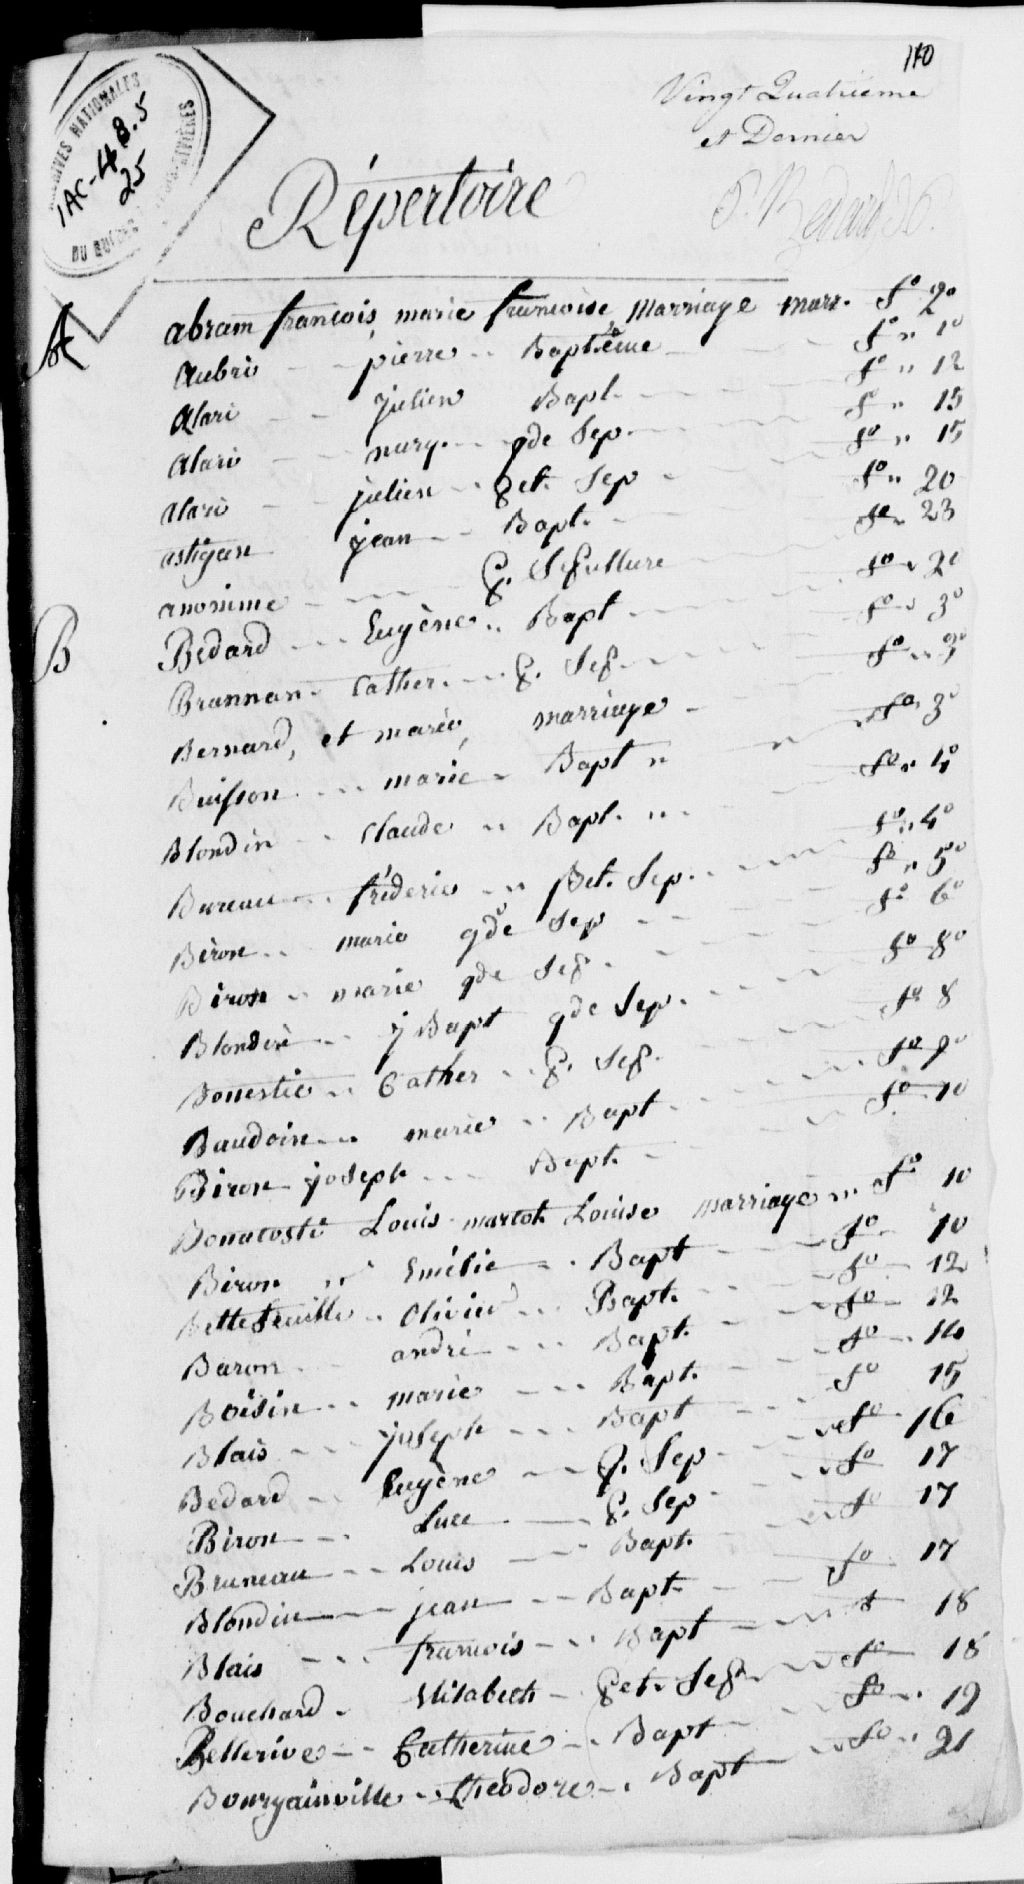 110
Vingt Quatrieme
et Dernier
ARCHIVES NATIONALES
1AC-48.5
25
DU QUÉBEC
Répertoire
A
abram francois marie francoise Marriage marr. fo 2o
Aubri pierre Baptême fo 1o
Alari julien Bapt. fo 12
Alari marg. gde Sep. fo 15
Alari julien pet. Sep fo 15
astigan jean Bapt. fo 20
anonime P. Sepulture fo 23
B
Bedard Eugène Bapt fo 2o
Brannan Cather. P. Sep fo 3o
Bernard, et marie, marriage fo 3o
Buisson marie Bapt fo 3o
Blondin Claude Bapt. fo 4o
Bureau fréderic Pet. Sep. fo 4o
Biron marie gde Sep fo 5o
Biron marie gde Sep. fo 6o
Blondin j Bapt gde Sep. fo 8o
Bonestie Cather P. Sep. fo 8
Baudoin marie Bapt fo 9o
Biron joseph Bapt. fo 10
Louis martot Louise marriage fo 10
Biron Emélie Bapt fo 10
Bellefeuille Olivier Bapt. fo 12
Baron andré Bapt. fo 12
Boisin marie Bapt. fo 14
Blais joseph Bapt fo 15
Bedard Eugène P. Sep fo 16
Biron Luce P. Sep fo 17
Bruneau Louis Bapt. fo 17
Blondin jean Bapt fo 17
Blais francois Bapt fo 18
Bouchard Elisabeth Pet. Sep fo 18
Bellerive Catherine Bapt fo 19
Bourgainville théodore Bapt fo 21